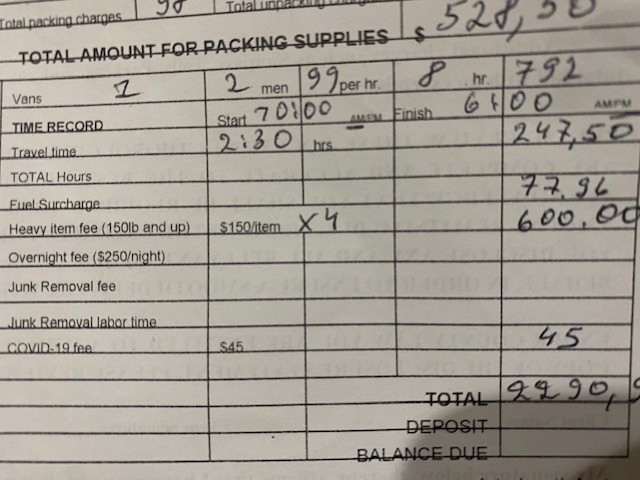 Total packing charges 90 Total unpacking
TOTAL AMOUNT FOR PACKING SUPPLIES $ 528,50
Vans 1 2 men 99 per hr. 8 hr. 792
TIME RECORD Start 10:00 AM PM Finish 6:00 AM PM
Travel time 2:30 hrs 247,50
TOTAL Hours
Fuel Surcharge 77.96
Heavy item fee (150lb and up) $150/item X4 600.00
Overnight fee ($250/night)
Junk Removal fee
Junk Removal labor time
COVID-19 fee $45 45
TOTAL 2290,9
DEPOSIT
BALANCE DUE